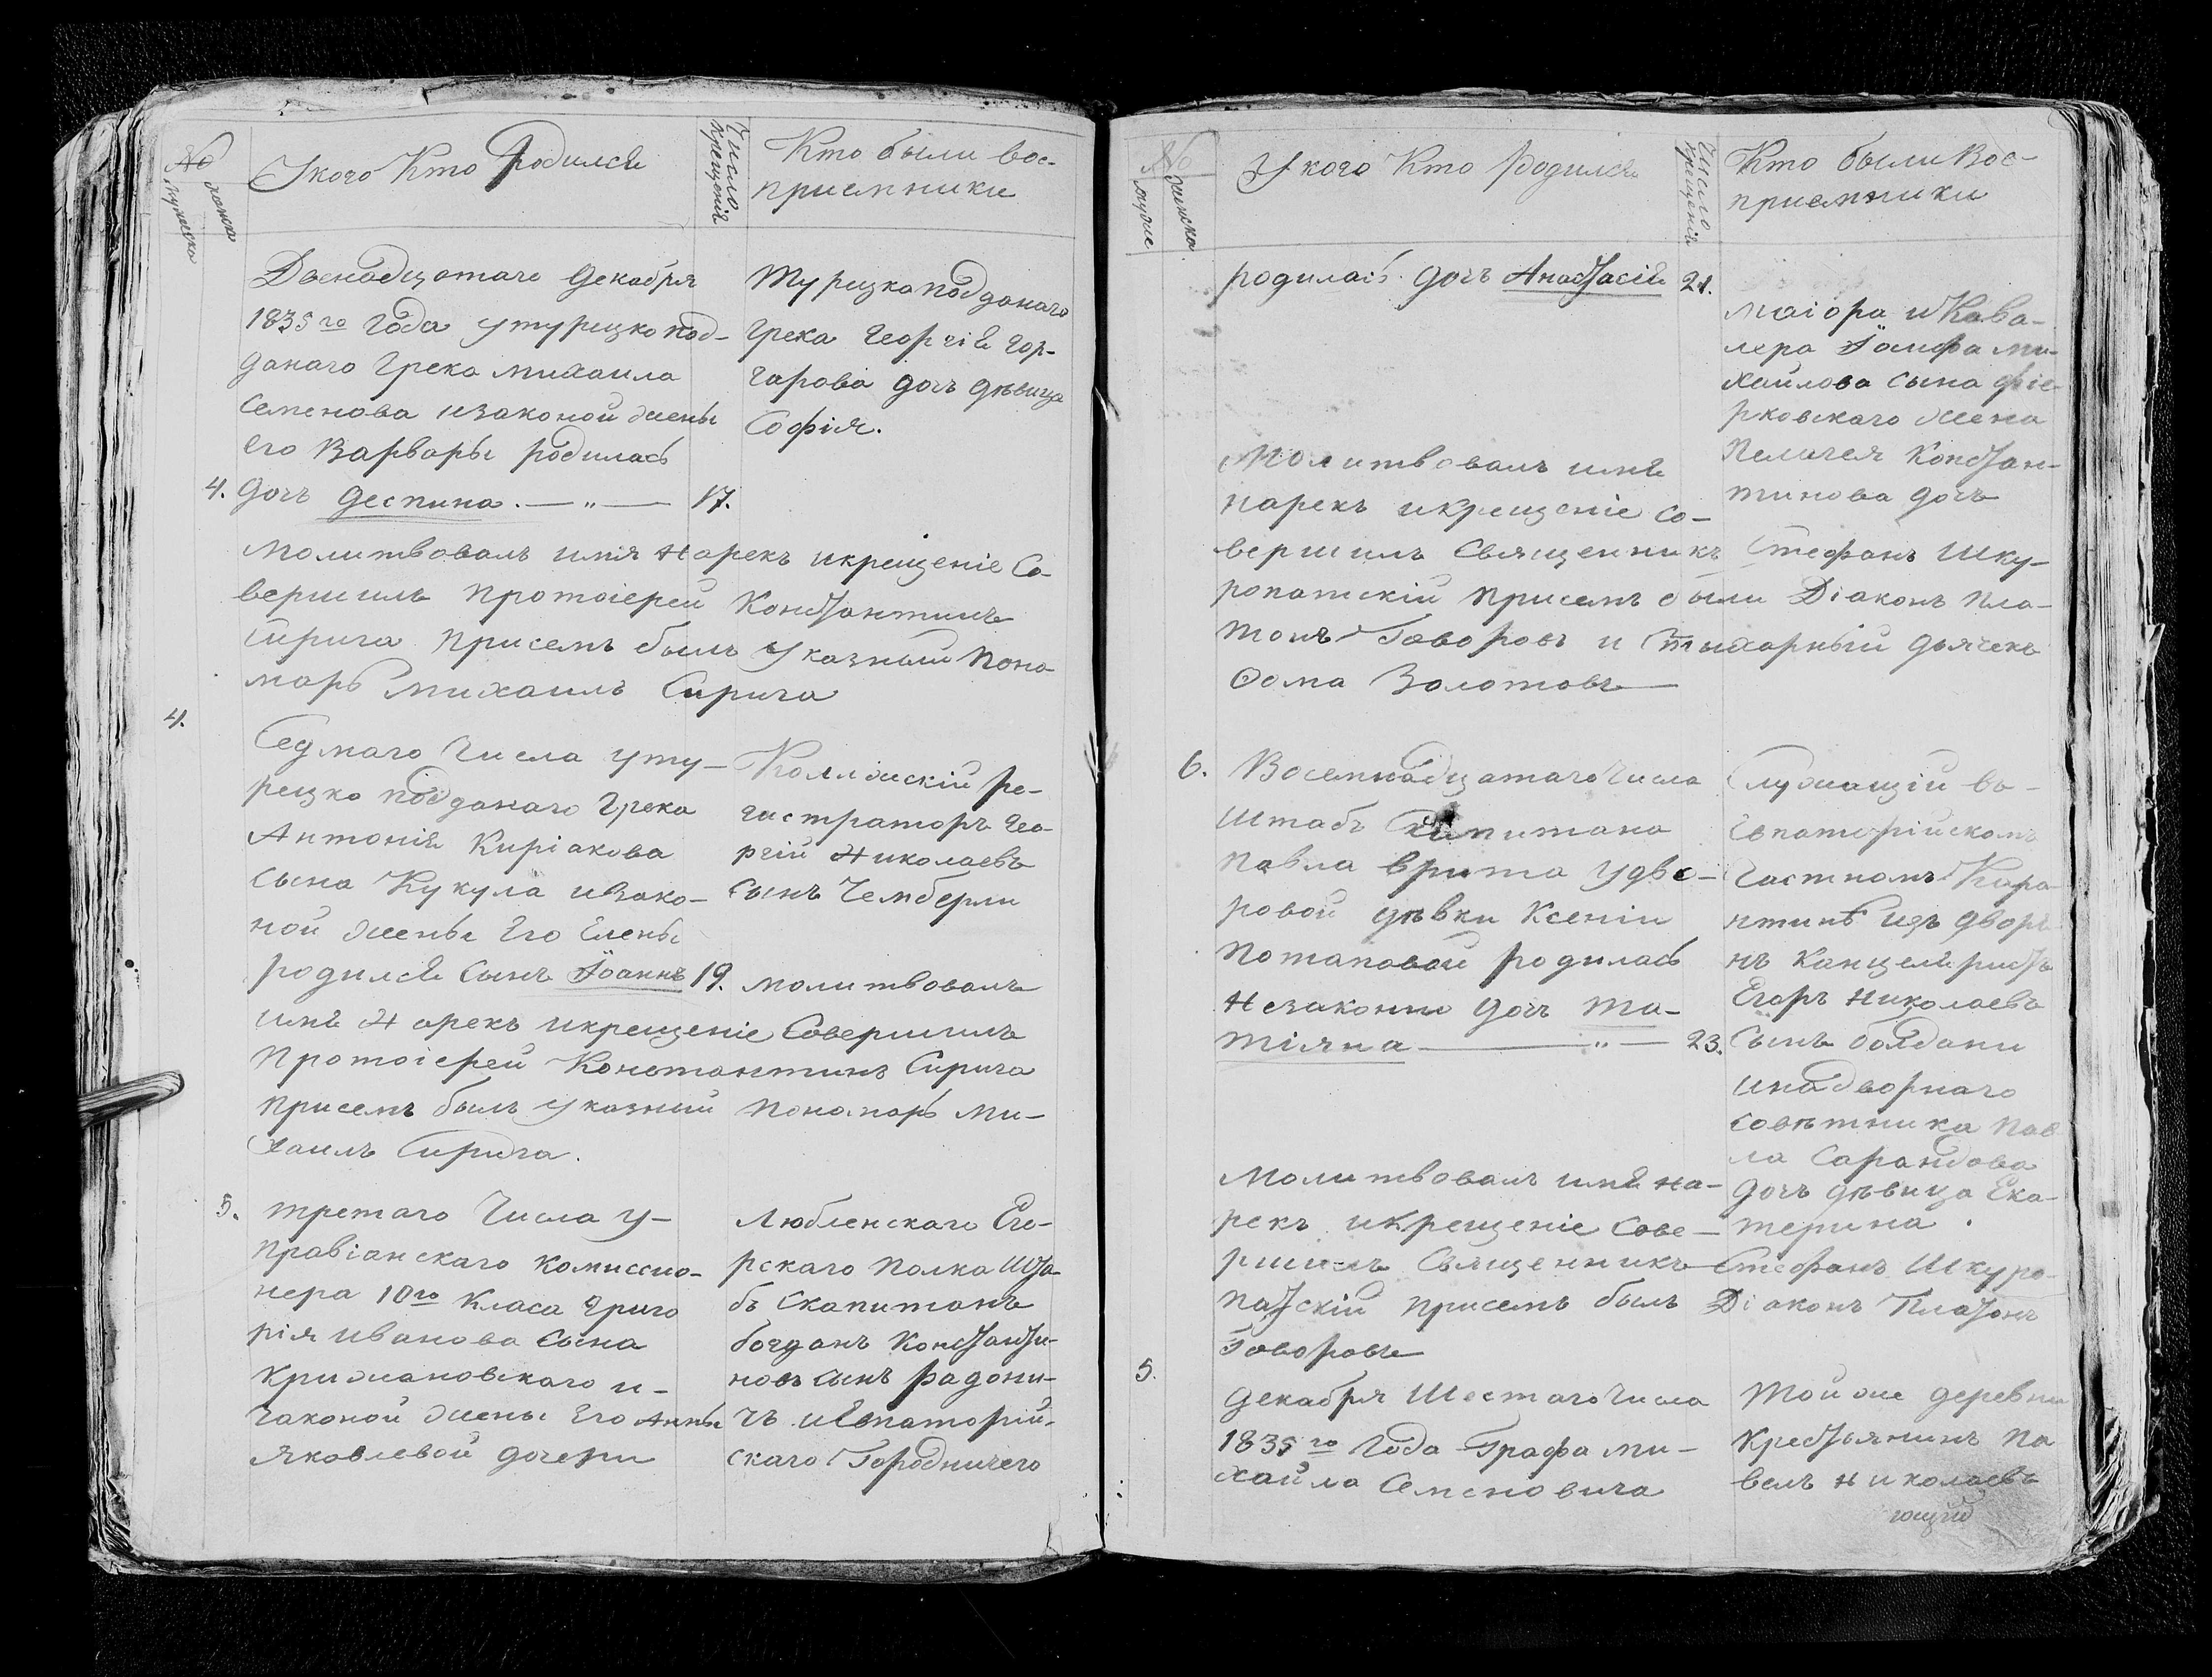 №
мужеска
женска
У кого Кто родился
Число
крещенія
Кто были вос-
приемники
Двенадцатаго Декабря
1835го Года у турецко под-
данаго Грека михаила
Семенова изаконой жены
Его Варвары родилась
4. Дочь Деспина. — „ — 17.
Турецкаподданаго
Грека Георгія Гор-
Софія.
дочь дѣвица
молитвовалъ имя Нарекъ икрещеніе Со-
вершилъ Протоіерей Константинъ
Сирига присемъ былъ Указный Поно-
марь Михаилъ Сирига
4.
Седмаго Числа у ту-
рецко подданаго Грека
Антонія Киріакова
сына Кукула изако-
ной жены Его Елены
родился Сынъ Іоаннъ 19.
Коллежскій ре-
гистраторъ Гео-
ргій Николаевъ
Сынъ Чемберли
молитвовалъ
имя Нарекъ икрещеніе Совершилъ
Протоіерей Константинъ Сирига
присемъ былъ указный Пономарь Ми-
хаилъ Сирига.
5. третаго Числа у-
правіанскаго комиссио-
нера 10го Класа Григо
рія Иванова Сына
Крижановскаго и-
законой жены Его Анны
Яковлевой дочери
Любленскаго Еге-
рскаго Полка Шта-
бъ Скапитанъ
богданъ Константи-
новъ сынъ радони-
чъ иЕвпаторій-
скаго Городничего
№
мужс
женска
У кого Кто родился
Число
крещенія
Кто были Вос-
приемники
родилась дочъ Анастасія 21.
маіора и Кава-
лера Іосифа ми-
хайлова сына фіе-
рковскаго жена
Пелагея Констан-
тинова дочь
Молитвовалъ имя
нарекъ икрещеніе со-
вершилъ Священникъ Стефанъ Шку-
ропатскій присемъ были Діаконъ Пла-
тонъ Говоровъ и Стихарный дьячекъ
Ѳома Золотовъ
6. Восемнадцатаго Числа
Штабъ Скапитана
Павла врита удво-
ровой дѣвки Ксеніи
Потаповой родилась
Незаконно дочь Та-
тіяна — „ — 23.
Служащій въ-
Евпаторійскомъ
Частномъ Кара-
нтинѣ изъ дворя
нъ Канцеляристъ
Егоръ Николаевъ
Сынъ болдани
инадворнаго
совѣтника Пав
ла Сарандова
дочь дѣвица Ека-
терина.
молитвовалъ имя на-
рекъ икрещеніе Сове-
ршилъ Священникъ Стефанъ Шкуро-
патскій присемъ былъ Діаконъ Платонъ
Говоровъ
5.
Декабря Шестаго Числа
1835го Года Графа ми-
хайла Семеновича
Той же деревни
Крестьянинъ Па
велъ Николаевъ
ющій